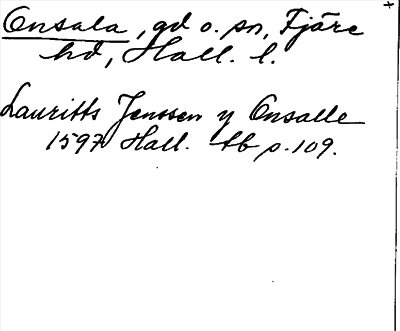 Onsala, gd o. sn, Fjäre
hd, Hall. l.
Lauritts Jenssen y Onsalle
1597 Hall. tb p. 109.